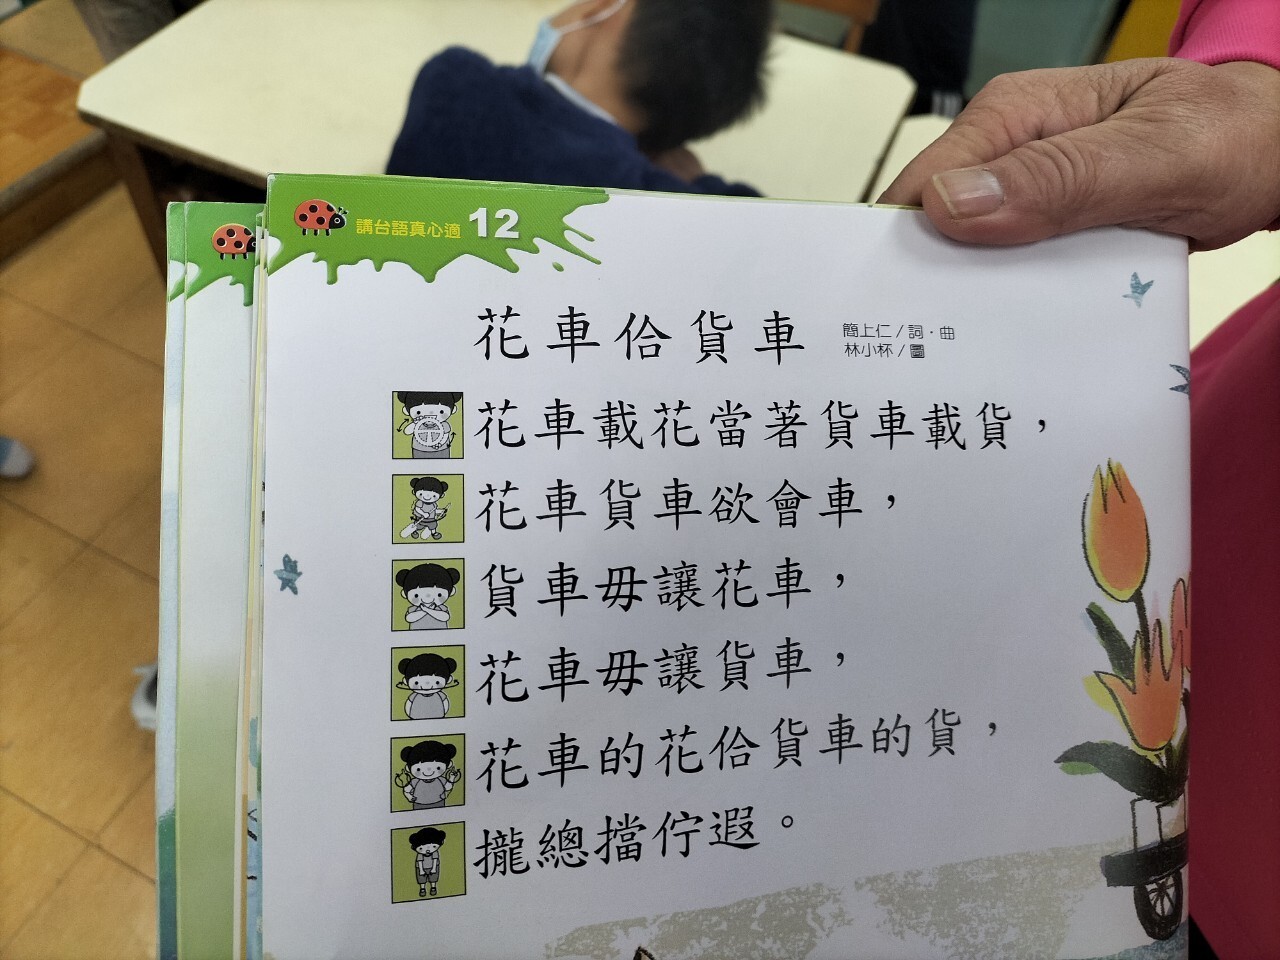 講台語真心適 12
花車佮貨車
簡上仁/詞·曲
林小杯/圖
花車載花當著貨車載貨，
花車貨車欲會車，
貨車毋讓花車，
花車毋讓貨車，
花車的花佮貨車的貨，
攏總擋佇遐。